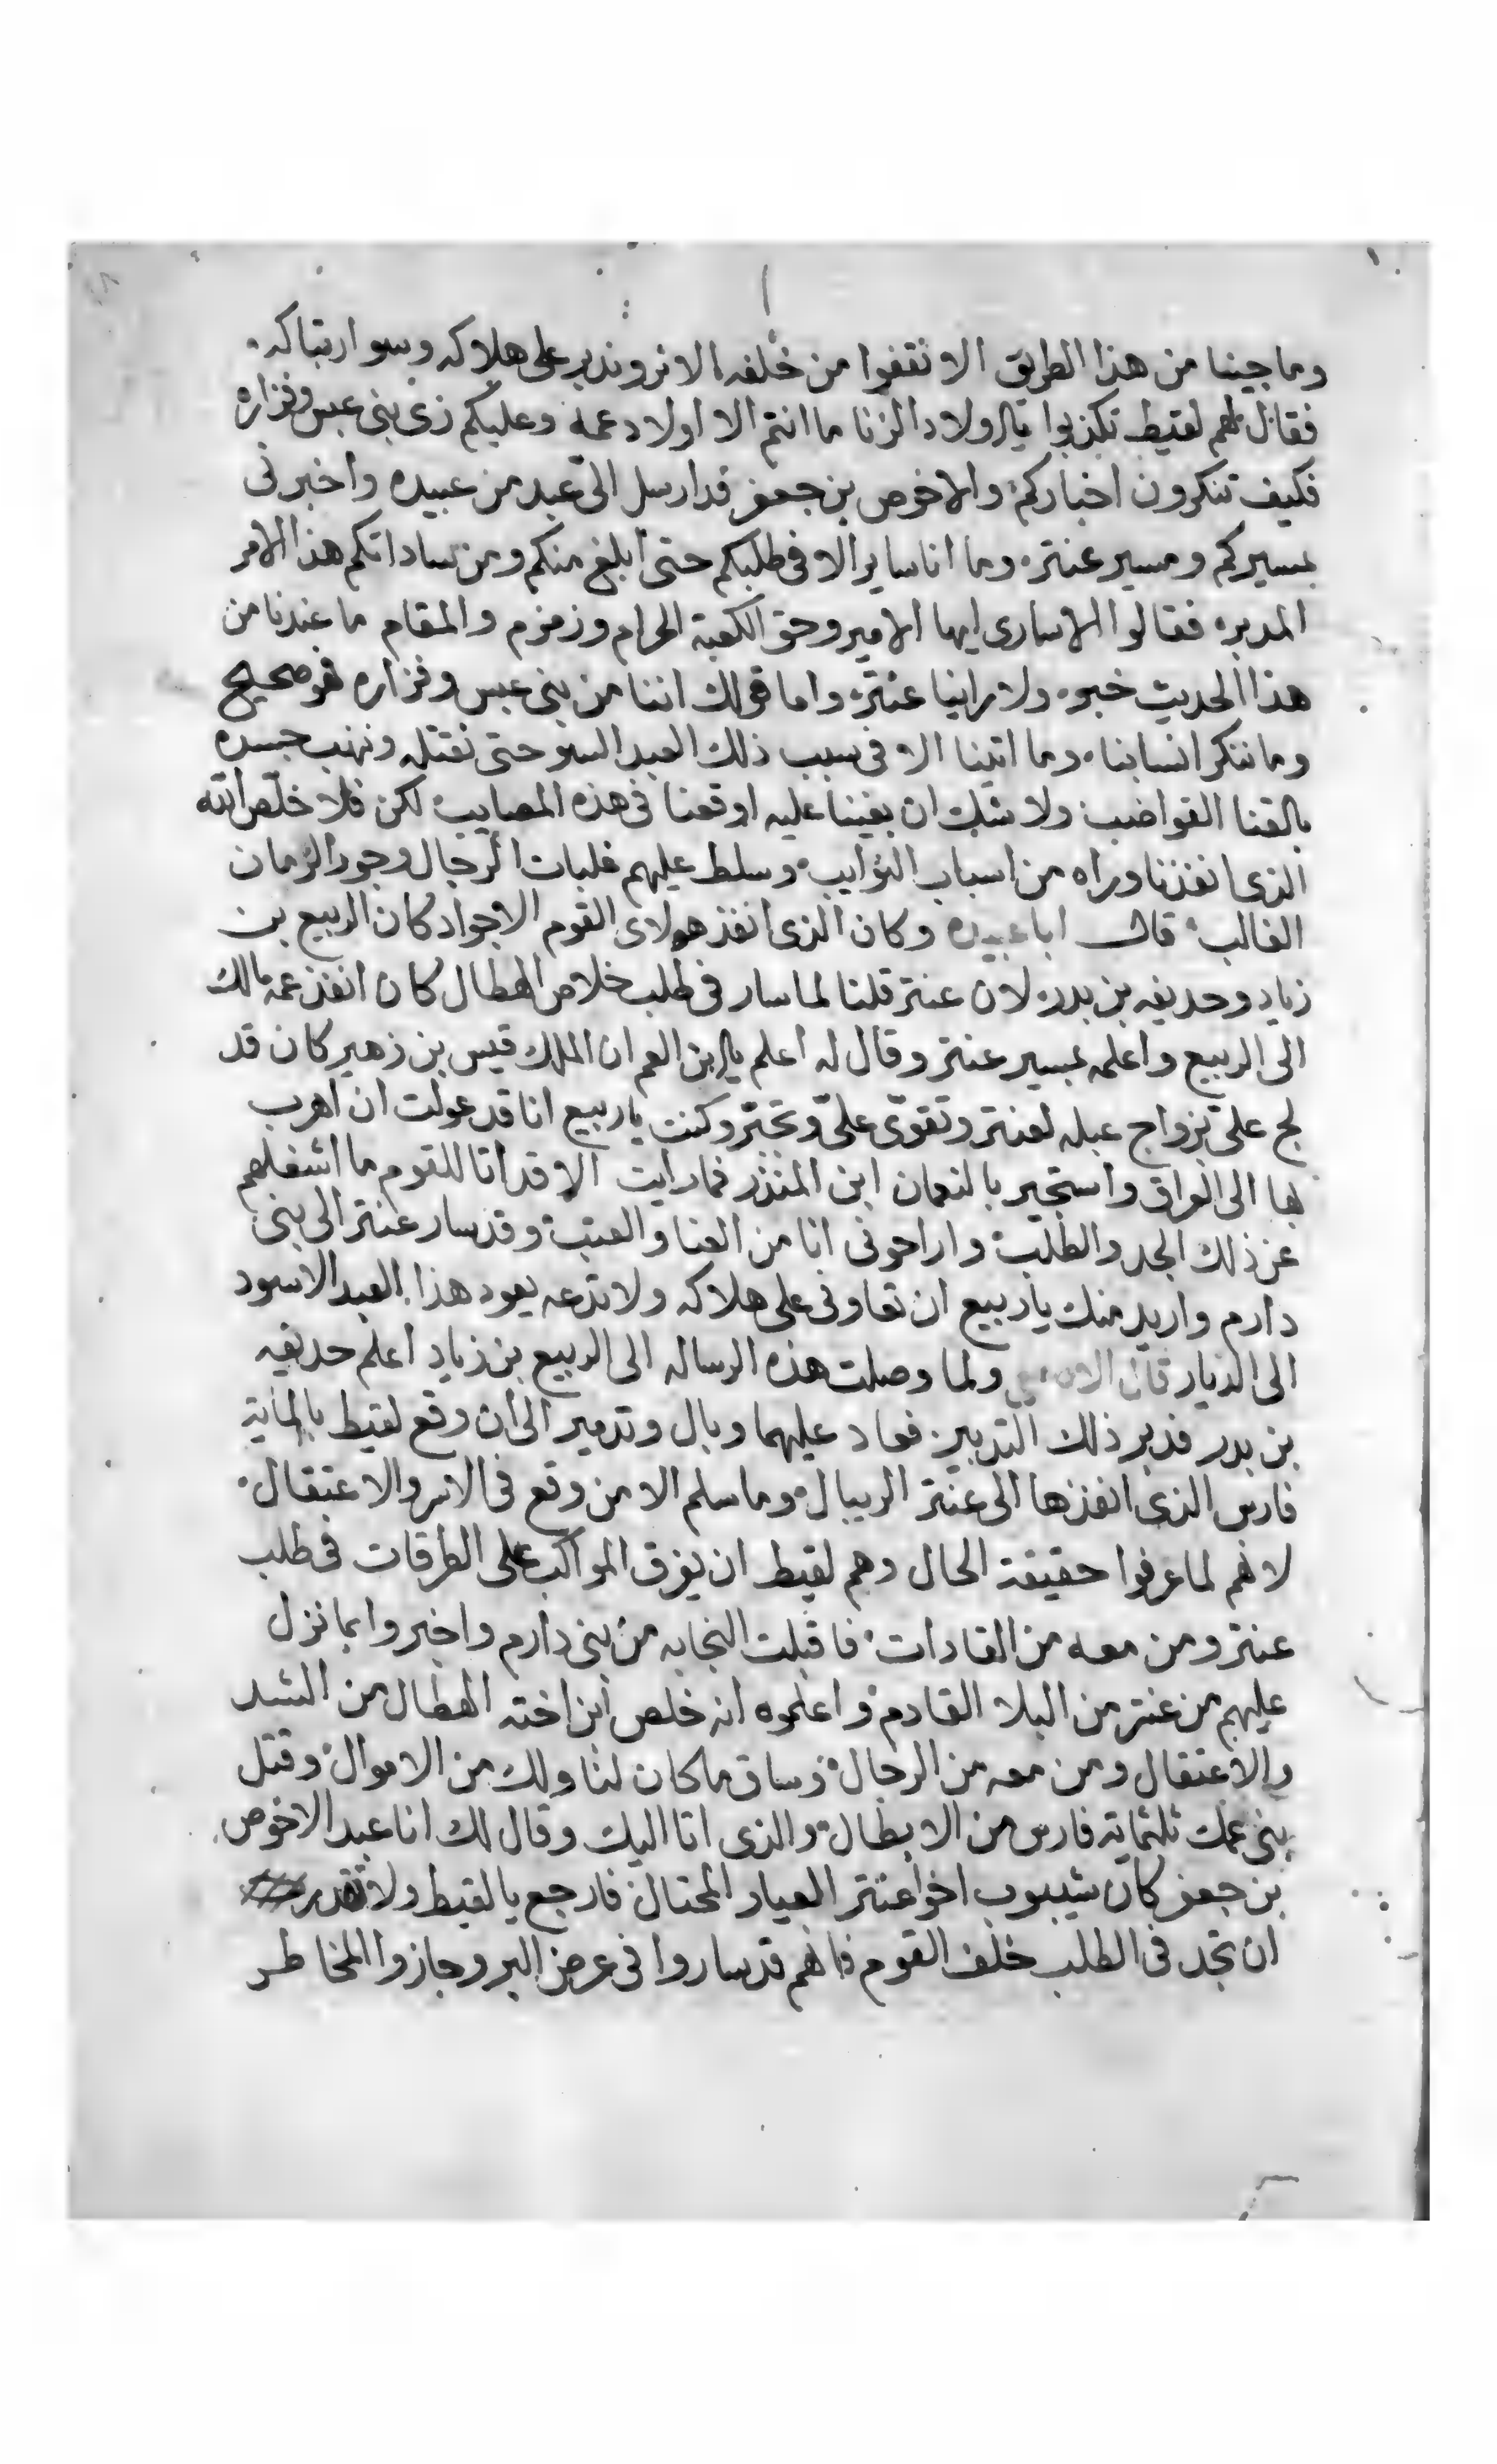 وما جينا من هذا الطريق الا نقفوا من خلفه الاثر وندبر على هلاكه وسو ارتباكه
فقال لهم لقيط تكذبوا يا اولاد الزنا ما انتم الا اولاد عمه وعليكم زى بنى عبس وفزاره
فكيف تنكرون اخباركم والاخوص بن جعفر قد ارسل الىّ عبد من عبيده واخبرنى
بمسيركم ومسير عنتره وما انا سايرا الا فى طلبكم حتى ابلغ منكم ومن ساداتكم هذا الامر
المدبره فقالوا الاسارى ايها الامير وحق الكعبة الحرام وزمزم والمقام ما عندنا من
هذا الحديث خبره ولا راينا عنتره واما قولك اننا من بنى عبس وفزاره فهو صحيح
وما ننكر انسابنا وما اتينا الا فى سبب ذلك العبد السو حتى نقتله وننهب جسده
بالقنا القواضب ولا شك ان بغينا عليه اوقعنا فى هذه المصايب لكن فلا خلّص الله
الذى انفذنا وراه من اسباب النوايب وسلط عليهم غلبات الرجال وجور الزمان
الغالب قال ابا عبيده وكان الذى انفذ هولاى القوم الاجواد كان الربيع بن
زياد وحديفه بن بدره لان عنتر قلنا لما سار فى طلب خلاص الهطال كان انفذ عمه مالك
الى الربيع واعلمه بمسير عنتر وقال له اعلم يا ابن العم ان الملك قيس بن زهير كان قد
لج علىّ بزواج عبله لعنتر وتقوّى علىّ وتجبّر وكنت يا ربيع انا قد عولت ان اهرب
بها الى العراق واستجير بالنعمان ابن المنذر فما رايت الا قد اتا للقوم ما اشغلهم
عن ذلك الجد والطلب واراحونى انا من العنا والعتب وقد سار عنتر الى بنى
دارم واريد منك يا ربيع ان تعاونى على هلاكه ولا تدعه يعود هذا العبد الاسود
الى الديار قال الاصمعى ولما وصلت هذه الرساله الى الربيع بن زياد اعلم حديفه
بن بدر فدبر ذلك التدبير فعاد عليهما وبال وتدمير الى ان وقع لقيط بالماية
فارس الذى انفذها الى عنتر الريبال وما سلم الا من وقع فى الاسر والاعتقال
لانهم لما عرفوا حقيقة الحال وهم لقيط ان يفرق المواكب على الطرقات فى طلب
عنتر ومن معه من القادات فاقبلت النجابه من بنى دارم واخبروا بما نزل
عليهم من عنتر من البلا القادم واعلموه انه خلص ابن اخته الهطال من الشد
والاعتقال ومن معه من الرجال وساق ما كان لنا ولك من الاموال وقتل
بنى عمك ثلثماية فارس من الابطال والذى اتا اليك وقال لك انا عبد الاخوص
بن جعفر كان شيبوب اخوا عنتر العيار المحتال فارجع يا لقيط ولا تقدر
ان تجد فى الطلب خلف القوم فانهم قد ساروا فى عرض البر وجازوا المخاطر